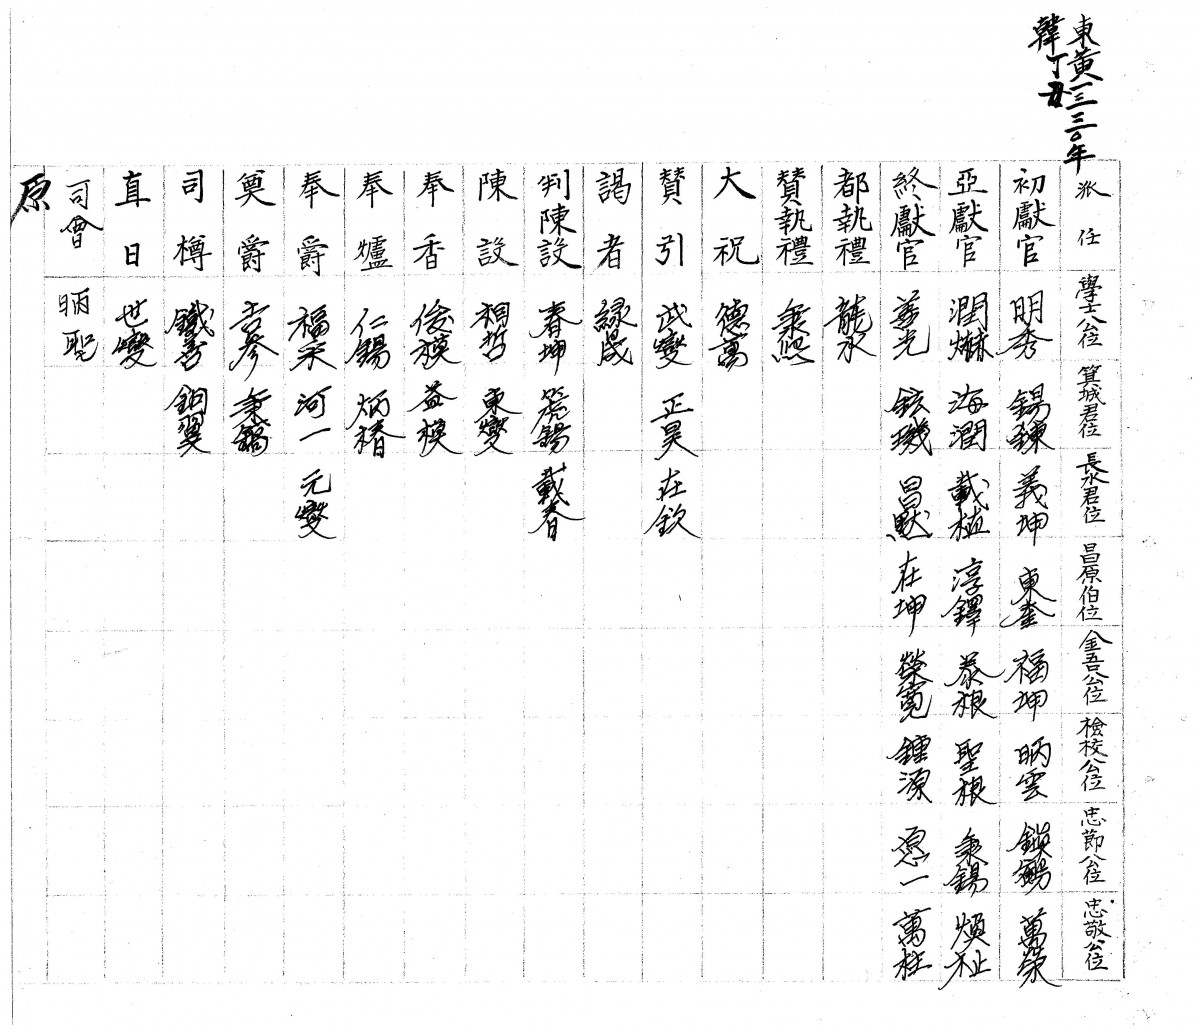 東黃一三三〇年
韓丁丑
派任 學士公位 箕城君位 長水君位 昌原伯位 金吾公位 檢校公位 忠節公位 忠敬公位
初獻官 明秀 錫鍊 義坤 東奎 福坤 昞雲 萬榮
亞獻官 潤 海潤 載植 淳鐸 泰根 聖根 秉錫 煥祉
終獻官 善光 鉉璣 昌默 在坤 榮寬 鍾源 愿一 萬柱
都執禮 龍水
贊執禮 秉熙
大祝 德萬
贊引 武燮 正昊 在欽
謁者 緑晟
判陳設 春坤 錫 載春
陳設 相哲 東燮
奉香 俊模 益模
奉爐 仁錫 炳椿
奉爵 福來 河一 元燮
奠爵 吉彥 秉鎬
司樽 鐵善 翼
直日 世燮
司會 昞聖
原